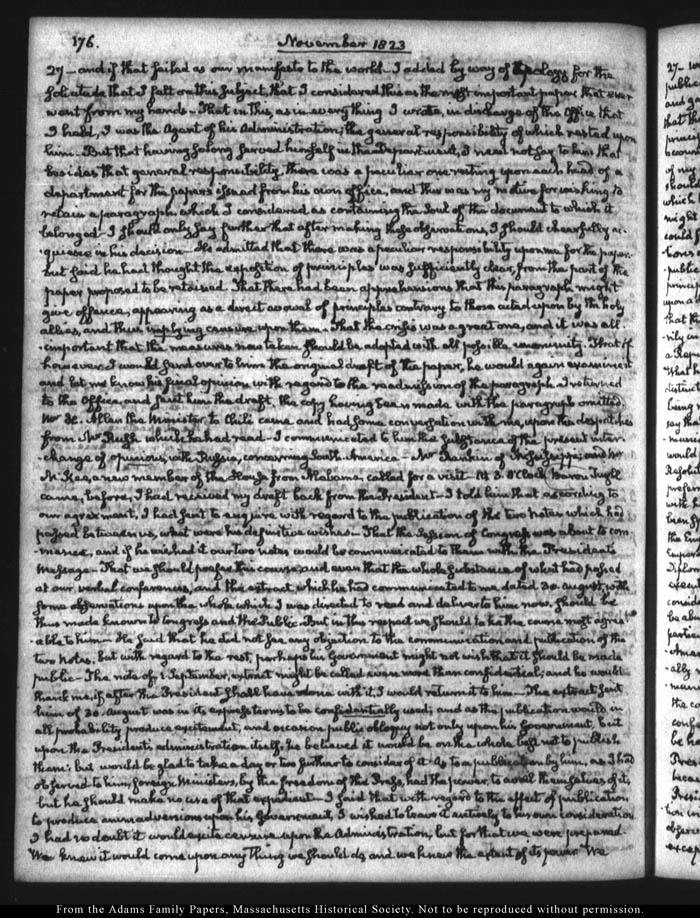 176.
November 1823
27 – and if that failed as our manifesto to the world – I added by way of apology for the
solicitude that I felt on this subject, that I considered this as the most important paper that ever
went from my hands – That in this, as in every thing I wrote, in discharge of the Office that
I hold, I was the Agent of his Administration, the general responsibility of which rested upon
him – But that having so long served himself in the Department, I need not say to him that
besides that general responsibility, there was a peculiar one resting upon each head of a
department for the papers issued from his own office, and this was my motive for wishing to
retain a paragraph which I considered as containing the Soul of the document to which it
belonged – I should only say further that after making these observations, I should cheerfully ac-
quiesce in his decision – He admitted that there was a peculiar responsibility upon me for the paper
but said he had thought the exposition of principles was sufficiently clear, from the part of the
paper proposed to be retained. That there had been apprehensions that this paragraph might
give offence, appearing as a direct avowal of principles contrary to those acted upon by the holy
allies, and thus implying censure upon them – That the crisis was a great one, and it was all
-important that the measures now taken should be adopted with all possible unanimity. That if
however I would send over to him the original draft of the paper, he would again examine it
and let me know his final opinion with regard to the readmission of the paragraph. I returned
to the Office, and sent him the draft, the copy having been made with the paragraph omitted.
Mr H. Allen the Minister to Chili came and had some conversation with me, upon the despatches
from Mr Rush which he had read – I communicated to him the substance of the present inter-
-change of opinions, with Russia, concerning South-America – Mr Rankin of Mississippi, and Mr
M'Kee, a new member of the House from Alabama, called for a visit – At 3. O'Clock Baron Tuyll
came, before, I had received my draft back from the President – I told him that according to
our agreement, I had sent to enquire with regard to the publication of the two notes which had
passed between us, what were his definitive wishes – That the Session of Congress was about to com-
-mence, and if he wished it our two notes would be communicated to them with the President's
Message – That we should prefer this course and even that the whole substance of what had passed
at our verbal conferences, and the extract which he had communicated to me dated 30 August, with
some observations upon the whole which I was directed to read and deliver to him now, should be
thus made known to Congress and the Public. But in this respect we should take the course most agree
-able to him – He said that he did not see any objection to the communication and publication of the
two notes; but with regard to the rest, perhaps his Government might not wish that it should be made
public – The note of 1 September, extract might be called even more than confidential; and he would
thank me, if after the President shall have done with it, I would return it to him – The extract sent
him of 30 August was in its express terms to be confidentially used; and as the publication would in
all probability produce excitement, and occasion public obloquy not only upon his Government, but
upon the President's administration itself, he believed it would be on the whole best not to publish
them: but would be glad to take a day or two further to consider of it. As to a publication by him, as I had
observed to him, foreign Ministers, by the freedom of the Press, had the power to avail themselves of it,
but he should make no use of that expedient – I said that with regard to the effect of publication
to produce animadversions upon his Government, I wished to leave it entirely to his own consideration
I had no doubt it would excite censure upon the Administration, but for that we were prepared.
We knew it would come upon any thing we should do, and we knew the extent of its power We
From the Adams Family Papers, Massachusetts Historical Society. Not to be reproduced without permission.